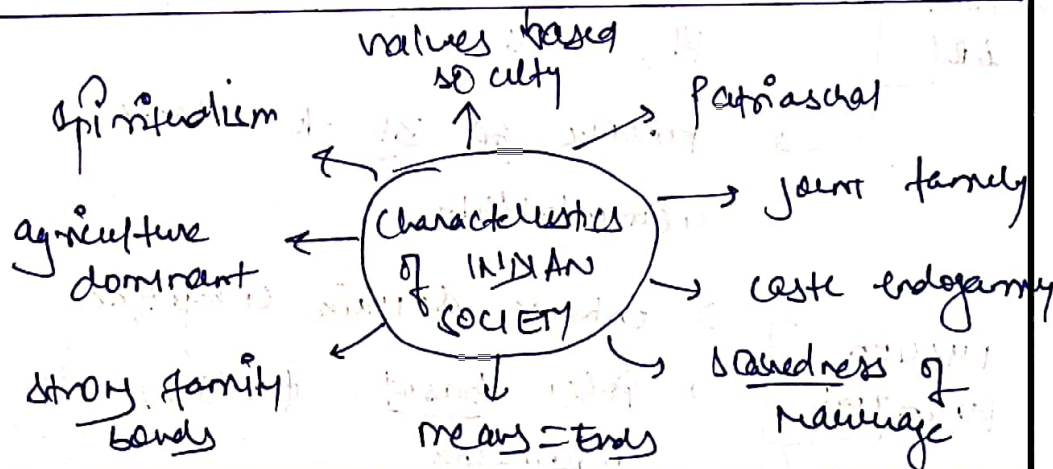 values based
society
spiritualism
Patriarchal
joint family
agriculture
dominant
characteristics
of INDIAN
SOCIETY
caste endogamy
strong family
bonds
means = Ends
sacredness of
Marriage